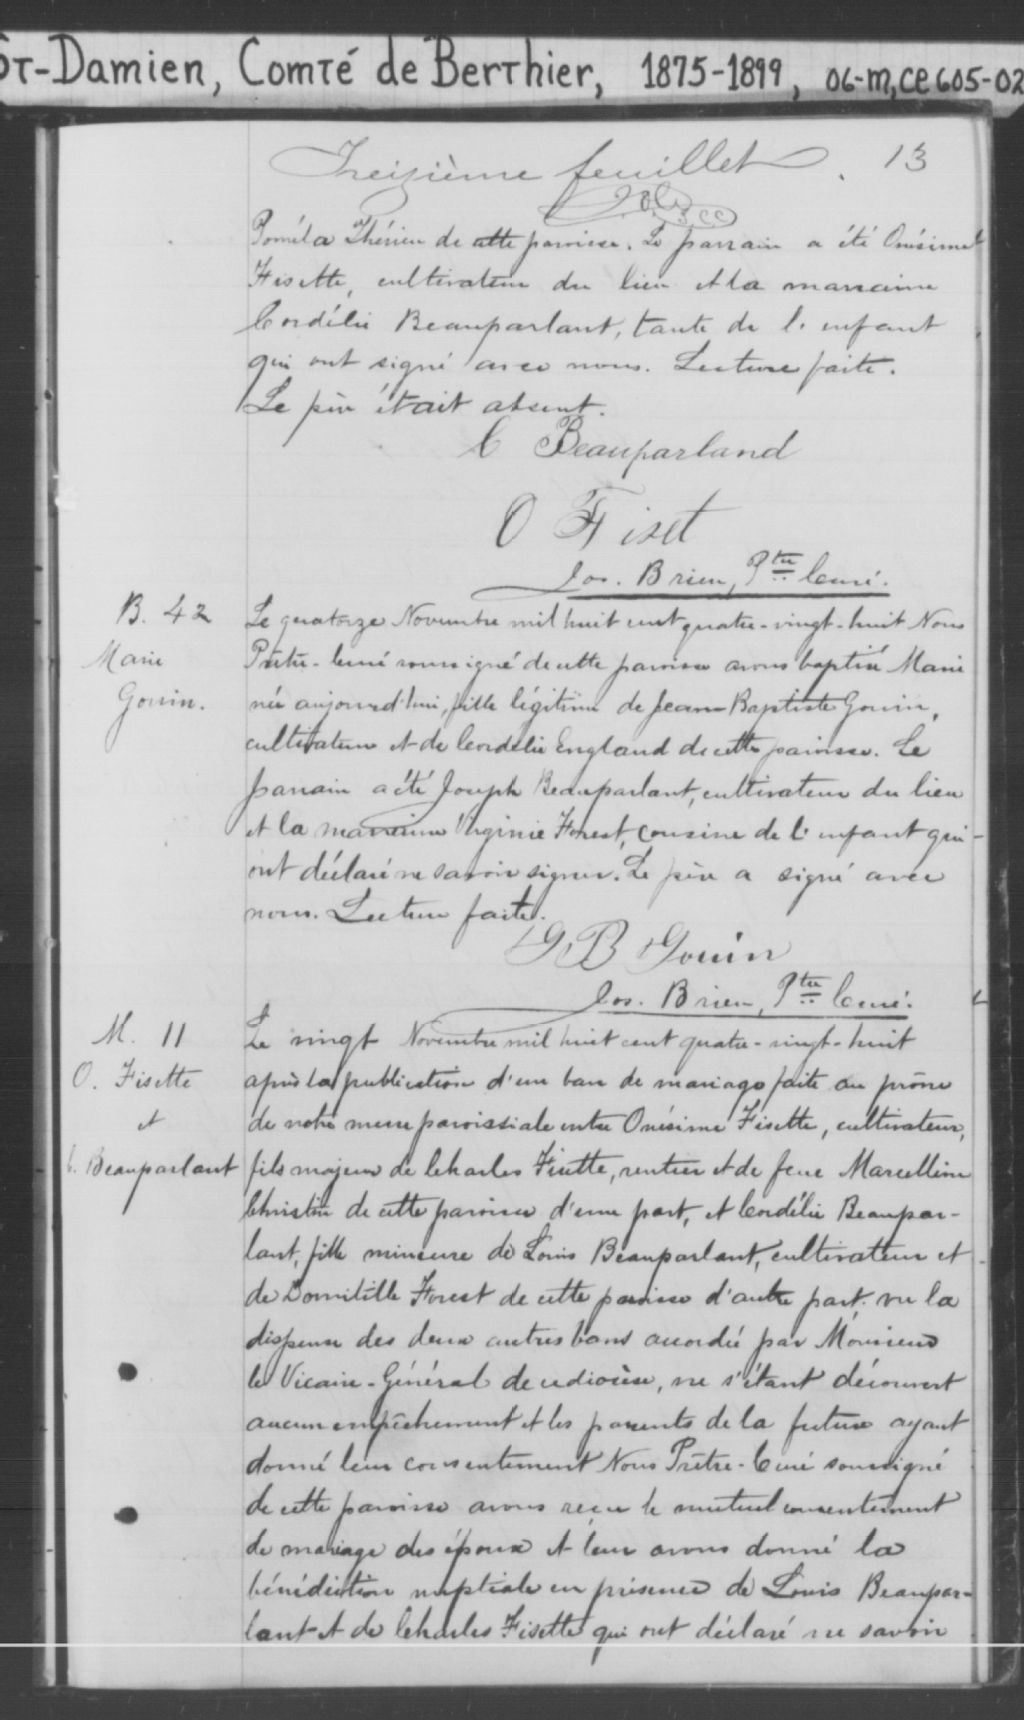 ST-Damien, Comté de Berthier, 1875-1899, 06-M,CE605-02
Treizième feuillet. 13
Poméla Thérien de cette paroisse. Le parrain a été Onésime
Fisette, cultivateur du lieu et la marraine
Cordélie Beauparlant, tante de l'enfant
qui ont signé avec nous. Lecture faite.
Le père était absent.
C Beauparland
O Fiset
Jos. Brien, Ptre Curé.
B. 42
Marie
Gouin.
Le quatorze Novembre mil huit cent quatre-vingt-huit Nous
Prêtre-Curé soussigné de cette paroisse avons baptisé Marie
née aujourd'hui, fille légitime de Jean-Baptiste Gouin,
cultivateur et de Cordélie England de cette paroisse. Le
parrain a été Joseph Beauparlant, cultivateur du lieu
et la marraine Virginie Forest, cousine de l'enfant qui
ont déclaré ne savoir signer. Le père a signé avec
nous. Lecture faite.
J B Gouin
Jos. Brien, Ptre Curé.
M. 11
O. Fisette
et
C. Beauparlant
Le vingt Novembre mil huit cent quatre-vingt-huit
après la publication d'un ban de mariage faite au prône
de notre messe paroissiale entre Onésime Fisette, cultivateur,
fils majeur de Charles Fisette, rentier et de feue Marcelline
Christin de cette paroisse d'une part, et Cordélie Beaupar-
lant, fille mineure de Louis Beauparlant, cultivateur et
de Domitille Forest de cette paroisse d'autre part. vu la
dispense des deux autres bans accordée par Monsieur
le Vicaire-Général de ce diocèse, ne s'étant découvert
aucun empêchement et les parents de la future ayant
donné leur consentement Nous Prêtre-Curé soussigné
de cette paroisse avons reçu le mutuel consentement
de mariage des époux et leur avons donné la
bénédiction nuptiale en présence de Louis Beaupar-
lant et de Charles Fisette qui ont déclaré ne savoir